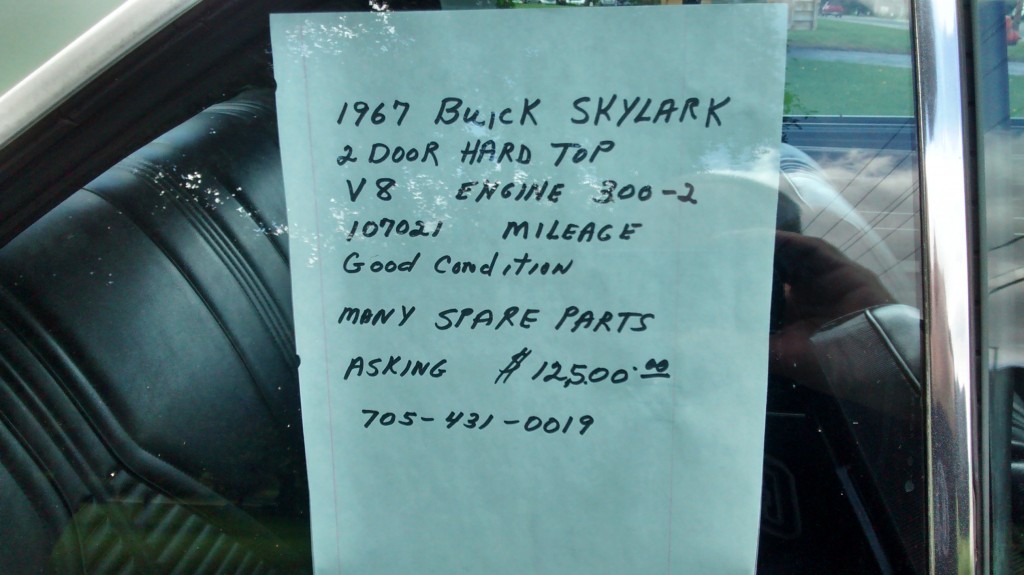 1967 Buick SKYLARK
2 DOOR HARD TOP
V8 ENGINE 300-2
107021 MILEAGE
Good Condition
MANY SPARE PARTS
ASKING $12,500.00
705-431-0019